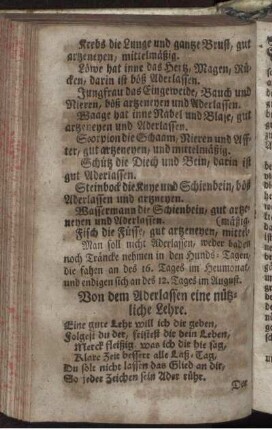 Krebs die Lunge und gantze Brust, gut
artzeneyen, mittelmäßig.
Löwe hat inne das Hertz, Magen, Rü-
cken, darin ist böß Aderlassen.
Jungfrau das Eingeweide, Bauch und
Nieren, böß artzeneyen und Aderlassen.
Waage hat inne Nabel und Blase, gut
artzeneyen und Aderlassen.
Scorpion die Schaam, Nieren und Aff-
ter, gut artzeneyen, und mittelmäßig.
Schütz die Diech und Bein, darin ist
gut Aderlassen.
Steinbock die Knye und Schienbein, böß
Aderlassen und artzneyen.
Wassermann die Schienbein, gut artze-
neyen und Aderlassen. (mäßig.
Fisch die Füsse, gut artzneyen, mittel-
Man soll nicht Aderlassen, weder baden
noch Träncke nehmen in den Hunds-Tagen,
die fahen an des 16. Tages im Heumonat,
und endigen sich an des 12. Tages im August.
Von dem Aderlassen eine nütz-
liche Lehre.
Eine gute Lehr will ich dir geben,
Folgest du der, fristest du dein Leben,
Merck fleißig was ich dir hie sag,
Klare Zeit bessere alle Laß-Tag,
Du solt nicht lassen das Glied an dir,
So jeder Zeichen sein Ader rühr.
Der